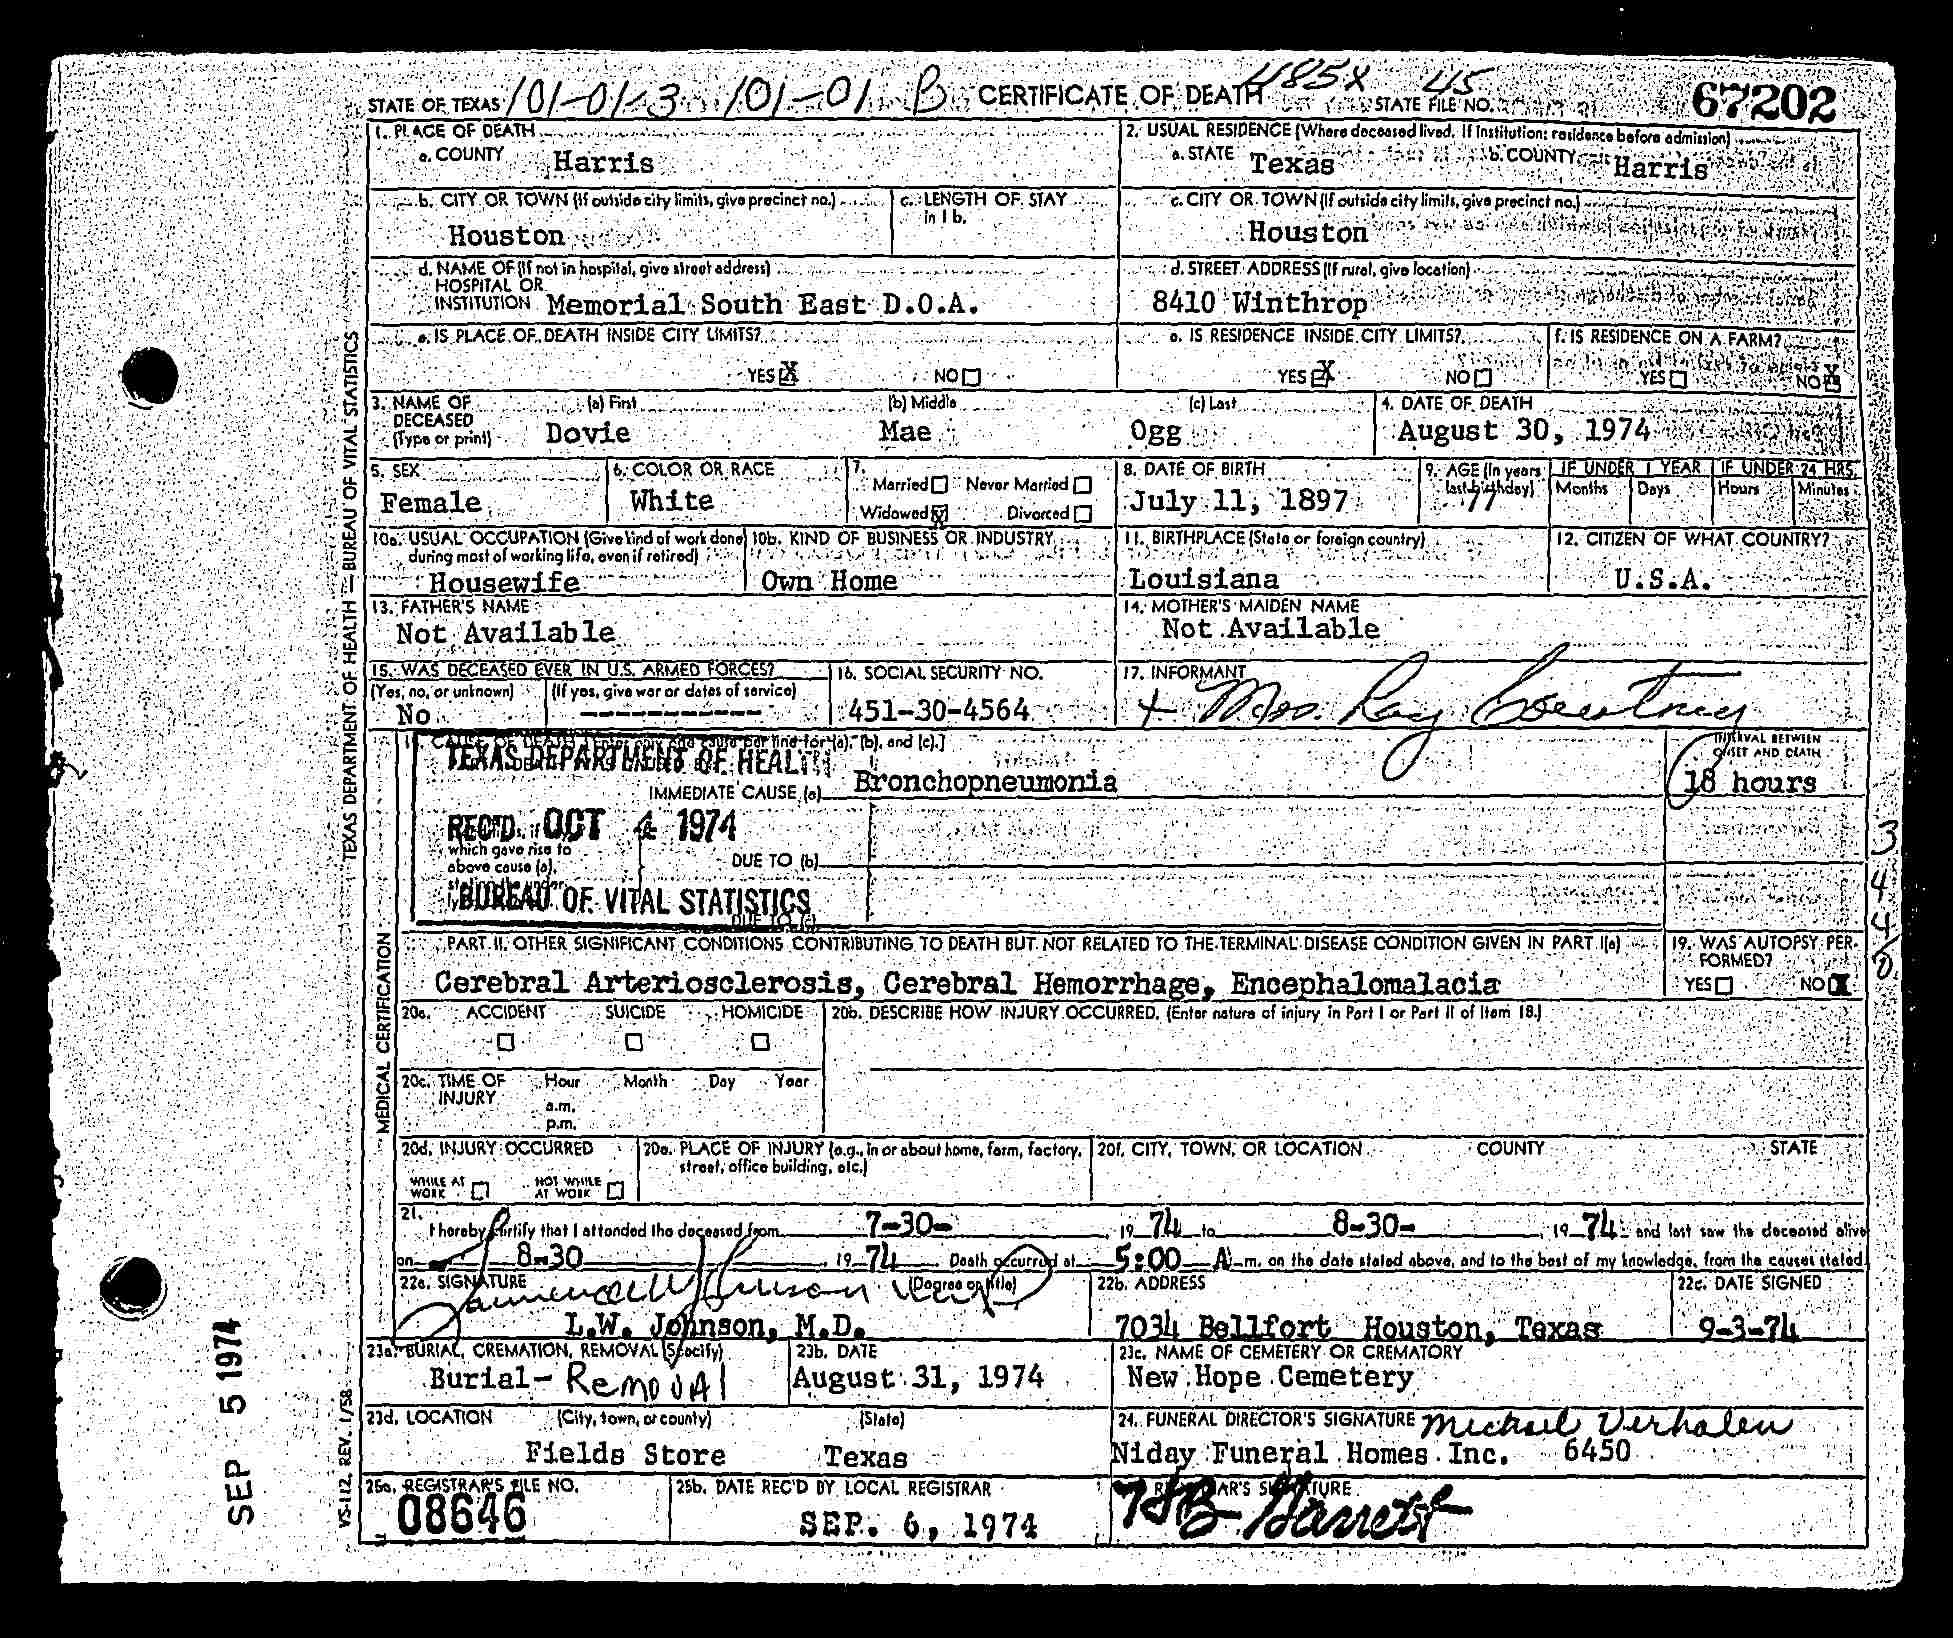 STATE OF TEXAS 101-01-3 101-01 B CERTIFICATE OF DEATH 485X 45 STATE FILE NO. 67202
1. PLACE OF DEATH
a. COUNTY Harris
2. USUAL RESIDENCE (Where deceased lived. If institution: residence before admission)
a. STATE Texas b. COUNTY Harris
b. CITY OR TOWN (If outside city limits, give precinct no.)
Houston
c. LENGTH OF STAY
in 1 b.
c. CITY OR TOWN (If outside city limits, give precinct no.)
Houston
d. NAME OF (If not in hospital, give street address)
HOSPITAL OR
INSTITUTION Memorial South East D.O.A.
d. STREET ADDRESS (If rural, give location)
8410 Winthrop
e. IS PLACE OF DEATH INSIDE CITY LIMITS?
YES X NO
e. IS RESIDENCE INSIDE CITY LIMITS?
YES X NO
f. IS RESIDENCE ON A FARM?
YES NO X
3. NAME OF
DECEASED
(Type or print)
(a) First (b) Middle (c) Last
Dovie Mae Ogg
4. DATE OF DEATH
August 30, 1974
5. SEX
Female
6. COLOR OR RACE
White
7.
Married Never Married
Widowed X Divorced
8. DATE OF BIRTH
July 11, 1897
9. AGE (In years
last birthday)
77
IF UNDER 1 YEAR IF UNDER 24 HRS.
Months Days Hours Minutes
10a. USUAL OCCUPATION (Give kind of work done
during most of working life, even if retired)
Housewife
10b. KIND OF BUSINESS OR INDUSTRY
Own Home
11. BIRTHPLACE (State or foreign country)
Louisiana
12. CITIZEN OF WHAT COUNTRY?
U.S.A.
13. FATHER'S NAME
Not Available
14. MOTHER'S MAIDEN NAME
Not Available
15. WAS DECEASED EVER IN U.S. ARMED FORCES?
(Yes, no, or unknown) (If yes, give war or dates of service)
No ------------
16. SOCIAL SECURITY NO.
451-30-4564
17. INFORMANT
+ Mrs. Ray Courtney
18. CAUSE OF DEATH (Enter only one cause per line for (a), (b), and (c).)
TEXAS DEPARTMENT OF HEALTH
IMMEDIATE CAUSE (a) Bronchopneumonia
INTERVAL BETWEEN
ONSET AND DEATH
18 hours
REC'D. OCT 4 1974
which gave rise to
above cause (a),
DUE TO (b)
BUREAU OF VITAL STATISTICS
DUE TO (c)
3
4
4
0
PART II. OTHER SIGNIFICANT CONDITIONS CONTRIBUTING TO DEATH BUT NOT RELATED TO THE TERMINAL DISEASE CONDITION GIVEN IN PART I(a)
Cerebral Arteriosclerosis, Cerebral Hemorrhage, Encephalomalacia
19. WAS AUTOPSY PER-
FORMED?
YES NO X
20a. ACCIDENT SUICIDE HOMICIDE
20b. DESCRIBE HOW INJURY OCCURRED. (Enter nature of injury in Part I or Part II of Item 18.)
20c. TIME OF
INJURY
Hour Month Day Year
a.m.
p.m.
20d. INJURY OCCURRED
WHILE AT
WORK
NOT WHILE
AT WORK
20e. PLACE OF INJURY (e.g., in or about home, farm, factory,
street, office building, etc.)
20f. CITY, TOWN, OR LOCATION COUNTY STATE
21.
I hereby certify that I attended the deceased from 7-30- 19 74 to 8-30- 19 74 and last saw the deceased alive
on 8-30 19 74 Death occurred at 5:00 A m. on the date stated above, and to the best of my knowledge, from the causes stated
22a. SIGNATURE (Degree or title)
L.W. Johnson, M.D.
22b. ADDRESS
7034 Bellfort Houston, Texas
22c. DATE SIGNED
9-3-74
23a. BURIAL, CREMATION, REMOVAL (Specify)
Burial- Removal
23b. DATE
August 31, 1974
23c. NAME OF CEMETERY OR CREMATORY
New Hope Cemetery
23d. LOCATION (City, town, or county) (State)
Fields Store Texas
24. FUNERAL DIRECTOR'S SIGNATURE Michael Verhalen
Niday Funeral Homes Inc. 6450
25a. REGISTRAR'S FILE NO.
08646
25b. DATE REC'D BY LOCAL REGISTRAR
SEP. 6, 1974
REGISTRAR'S SIGNATURE
Barrett
TEXAS DEPARTMENT OF HEALTH — BUREAU OF VITAL STATISTICS
MEDICAL CERTIFICATION
VS-112 REV. 1/58
SEP 5 1974